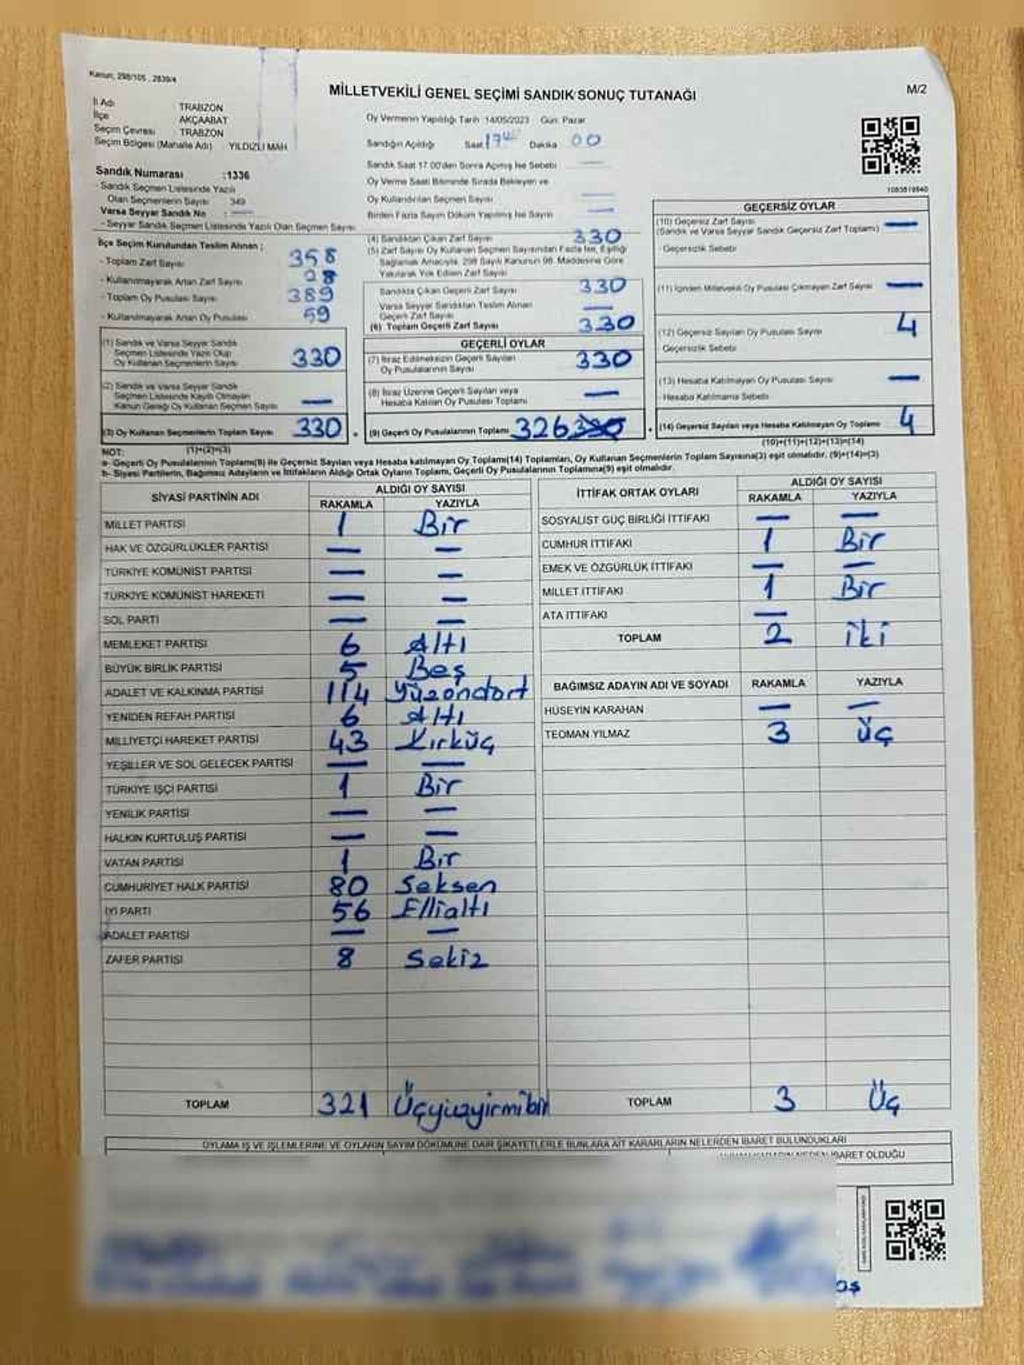 Kanun, 298/105 , 2839/4
MİLLETVEKİLİ GENEL SEÇİMİ SANDIK SONUÇ TUTANAĞI
M/2
İl Adı TRABZON
İlçe AKÇAABAT
Seçim Çevresi TRABZON
Seçim Bölgesi (Mahalle Adı) YILDIZLI MAH
Oy Vermenin Yapıldığı Tarih :14/05/2023 Gün: Pazar
Sandığın Açıldığı Saat Dakika 00
Sandık Saat 17:00'den Sonra Açılmış İse Sebebi —
Oy Verme Saati Bitiminde Sırada Bekleyen ve
Oy Kullandırılan Seçmen Sayısı —
Birden Fazla Sayım Döküm Yapılmış İse Sayısı —
Sandık Numarası :1336
- Sandık Seçmen Listesinde Yazılı
Olan Seçmenlerin Sayısı 349
Varsa Seyyar Sandık No : —
- Seyyar Sandık Seçmen Listesinde Yazılı Olan Seçmen Sayısı
İlçe Seçim Kurulundan Teslim Alınan ;
- Toplam Zarf Sayısı 358
- Kullanılmayarak Artan Zarf Sayısı 28
- Toplam Oy Pusulası Sayısı 389
- Kullanılmayarak Artan Oy Pusulası 59
(1) Sandık ve Varsa Seyyar Sandık
Seçmen Listesinde Yazılı Olup
Oy Kullanan Seçmenlerin Sayısı 330
(2) Sandık ve Varsa Seyyar Sandık
Seçmen Listesinde Kayıtlı Olmayan
Kanun Gereği Oy Kullanan Seçmen Sayısı —
(3) Oy Kullanan Seçmenlerin Toplam Sayısı 330
(1)+(2)=(3)
(4) Sandıktan Çıkan Zarf Sayısı 330
(5) Zarf Sayısı Oy Kullanan Seçmen Sayısından Fazla İse, Eşitliği
Sağlamak Amacıyla, 298 Sayılı Kanunun 98. Maddesine Göre
Yakılarak Yok Edilen Zarf Sayısı
Sandıkta Çıkan Geçerli Zarf Sayısı 330
Varsa Seyyar Sandıktan Teslim Alınan
Geçerli Zarf Sayısı —
(6) Toplam Geçerli Zarf Sayısı 330
GEÇERLİ OYLAR
(7) İtiraz Edilmeksizin Geçerli Sayılan
Oy Pusulalarının Sayısı 330
(8) İtiraz Üzerine Geçerli Sayılan veya
Hesaba Katılan Oy Pusulası Toplamı —
(9) Geçerli Oy Pusulalarının Toplamı 326
GEÇERSİZ OYLAR
(10) Geçersiz Zarf Sayısı —
(Sandık ve Varsa Seyyar Sandık Geçersiz Zarf Toplamı)
-Geçersizlik Sebebi
(11) İçinden Milletvekili Oy Pusulası Çıkmayan Zarf Sayısı —
(12) Geçersiz Sayılan Oy Pusulası Sayısı 4
Geçersizlik Sebebi
(13) Hesaba Katılmayan Oy Pusulası Sayısı —
- Hesaba Katılmama Sebebi
(14) Geçersiz Sayılan veya Hesaba Katılmayan Oy Toplamı 4
(10)+(11)+(12)+(13)=(14)
NOT:
a- Geçerli Oy Pusulalarının Toplamı(9) ile Geçersiz Sayılan veya Hesaba katılmayan Oy Toplamı(14) Toplamları, Oy Kullanan Seçmenlerin Toplam Sayısına(3) eşit olmalıdır. (9)+(14)=(3)
b- Siyasi Partilerin, Bağımsız Adayların ve İttifakların Aldığı Ortak Oyların Toplamı, Geçerli Oy Pusulalarının Toplamına(9) eşit olmalıdır.
SİYASİ PARTİNİN ADI ALDIĞI OY SAYISI
RAKAMLA YAZIYLA
MİLLET PARTİSİ 1 Bir
HAK VE ÖZGÜRLÜKLER PARTİSİ — —
TÜRKİYE KOMÜNİST PARTİSİ — —
TÜRKİYE KOMÜNİST HAREKETİ — —
SOL PARTİ — —
MEMLEKET PARTİSİ 6 Altı
BÜYÜK BİRLİK PARTİSİ 5 Beş
ADALET VE KALKINMA PARTİSİ 114 Yüzondört
YENİDEN REFAH PARTİSİ 6 Altı
MİLLİYETÇİ HAREKET PARTİSİ 43 Kırküç
YEŞİLLER VE SOL GELECEK PARTİSİ — —
TÜRKİYE İŞÇİ PARTİSİ 1 Bir
YENİLİK PARTİSİ — —
HALKIN KURTULUŞ PARTİSİ — —
VATAN PARTİSİ 1 Bir
CUMHURİYET HALK PARTİSİ 80 Seksen
İYİ PARTİ 56 Ellialtı
ADALET PARTİSİ — —
ZAFER PARTİSİ 8 Sekiz
TOPLAM 321 Üçyüzyirmibir
İTTİFAK ORTAK OYLARI ALDIĞI OY SAYISI
RAKAMLA YAZIYLA
SOSYALİST GÜÇ BİRLİĞİ İTTİFAKI — —
CUMHUR İTTİFAKI 1 Bir
EMEK VE ÖZGÜRLÜK İTTİFAKI — —
MİLLET İTTİFAKI 1 Bir
ATA İTTİFAKI —
TOPLAM 2 iki
BAĞIMSIZ ADAYIN ADI VE SOYADI RAKAMLA YAZIYLA
HÜSEYİN KARAHAN — —
TEOMAN YILMAZ 3 Üç
TOPLAM 3 Üç
OYLAMA İŞ VE İŞLEMLERİNE VE OYLARIN SAYIM DÖKÜMÜNE DAİR ŞİKAYETLERLE BUNLARA AİT KARARLARIN NELERDEN İBARET BULUNDUKLARI
İBARET OLDUĞU